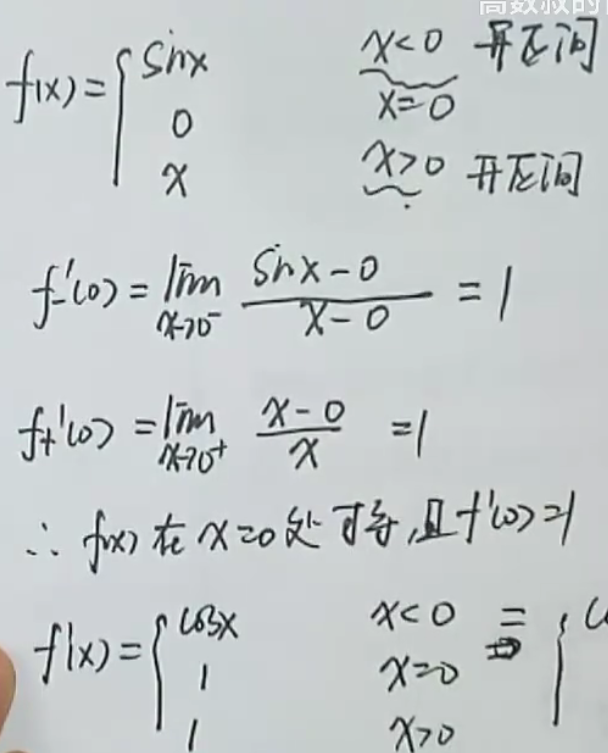 高数叔的
f(x)= { sinx x<0 开区间
0 x=0
x x>0 开区间
f-'(0) = lim x→0⁻ (sinx-0)/(x-0) = 1
f+'(0) = lim x→0⁺ (x-0)/x = 1
∴ f(x) 在 x=0 处可导,且f'(0)=1
f'(x) = { cosx x<0 = {
1 x=0
1 x>0